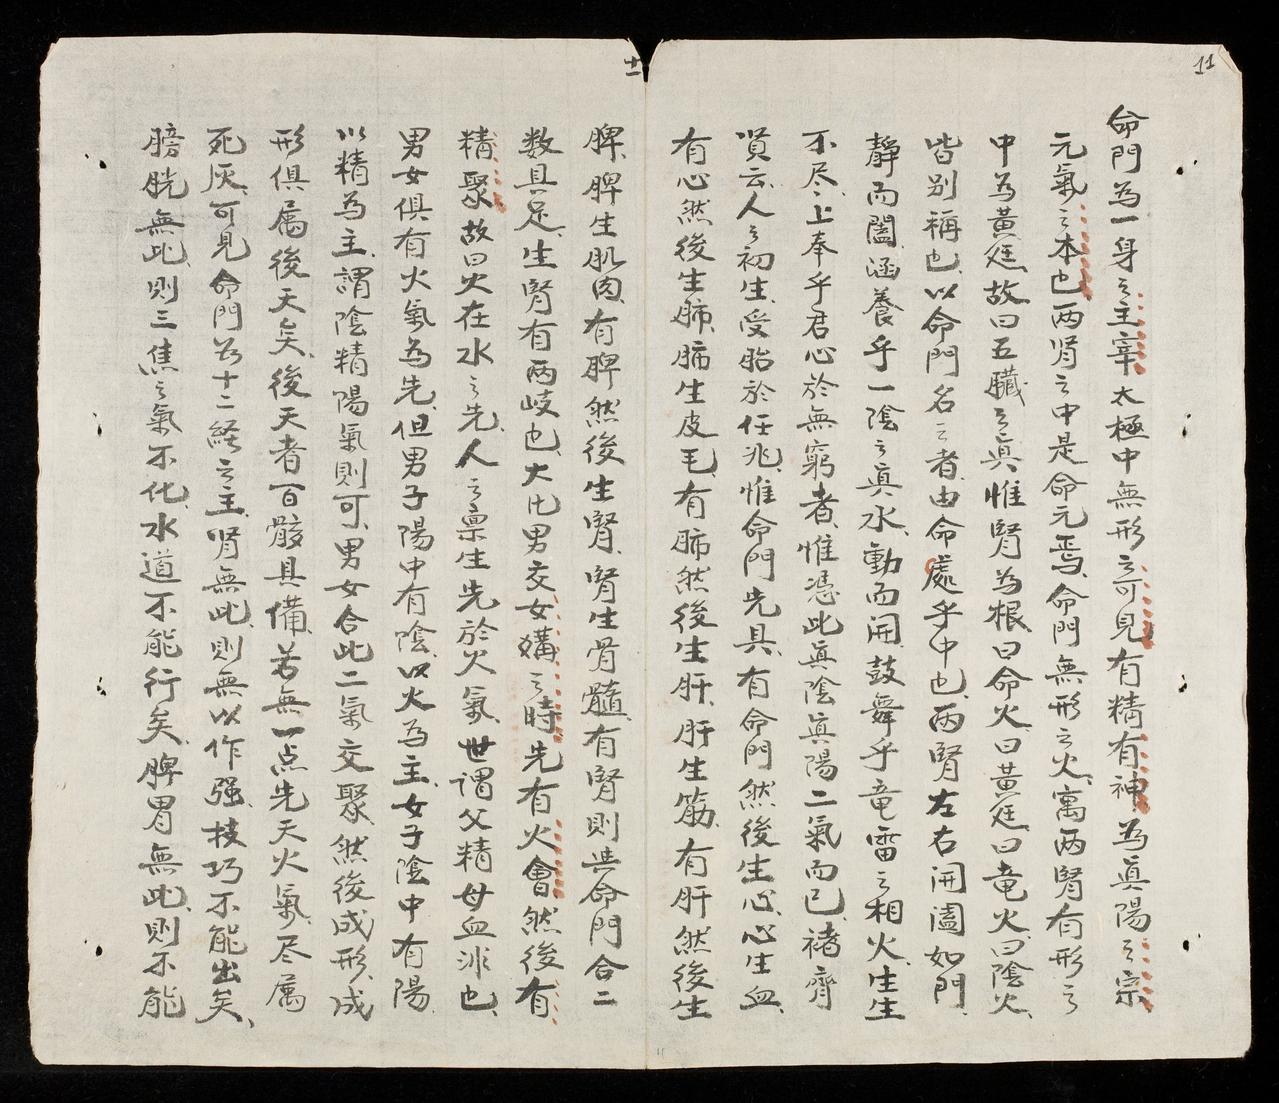 11
命門為一身之主宰太極中無形之可見有精有神為真陽之宗
元氣之本也两肾之中是命元焉命門無形之火寓两腎有形之
中為黃廷故曰五臟之真惟腎為根曰命火曰黃廷曰竜火曰陰火
皆别稱也以命門名之者由命處乎中也两腎左右闭闔如門
靜而闔涵養乎一陰之真水動而闭鼓舞乎竜雷之相火生生
不尽上奉乎君心於無窮者惟憑此真陰真陽二氣而已褚齊
贤云人之初生受胎於任兆惟命門先具有命門然後生心心生血
有心然後生肺肺生皮毛有肺然後生肝肝生筋有肝然後生
十一
脾脾生肌肉有脾然後生腎腎生骨髓有腎則共命門合二
数具足生腎有两岐也大比男交女媾之時先有火會然後有
精聚故曰火在水之先人之禀生先於火氣世謂父精母血非也
男女俱有火氣為先但男子陽中有陰以火為主女子陰中有陽
以精為主謂陰精陽氣則可男女合此二氣交聚然後成形成
形俱属後天矣後天者百骸具備若無一点先天火氣尽属
死灰可見命門为十二経之主肾無此則無以作强技巧不能出矣
膀胱無此則三焦之氣不化水道不能行矣脾胃無此則不能